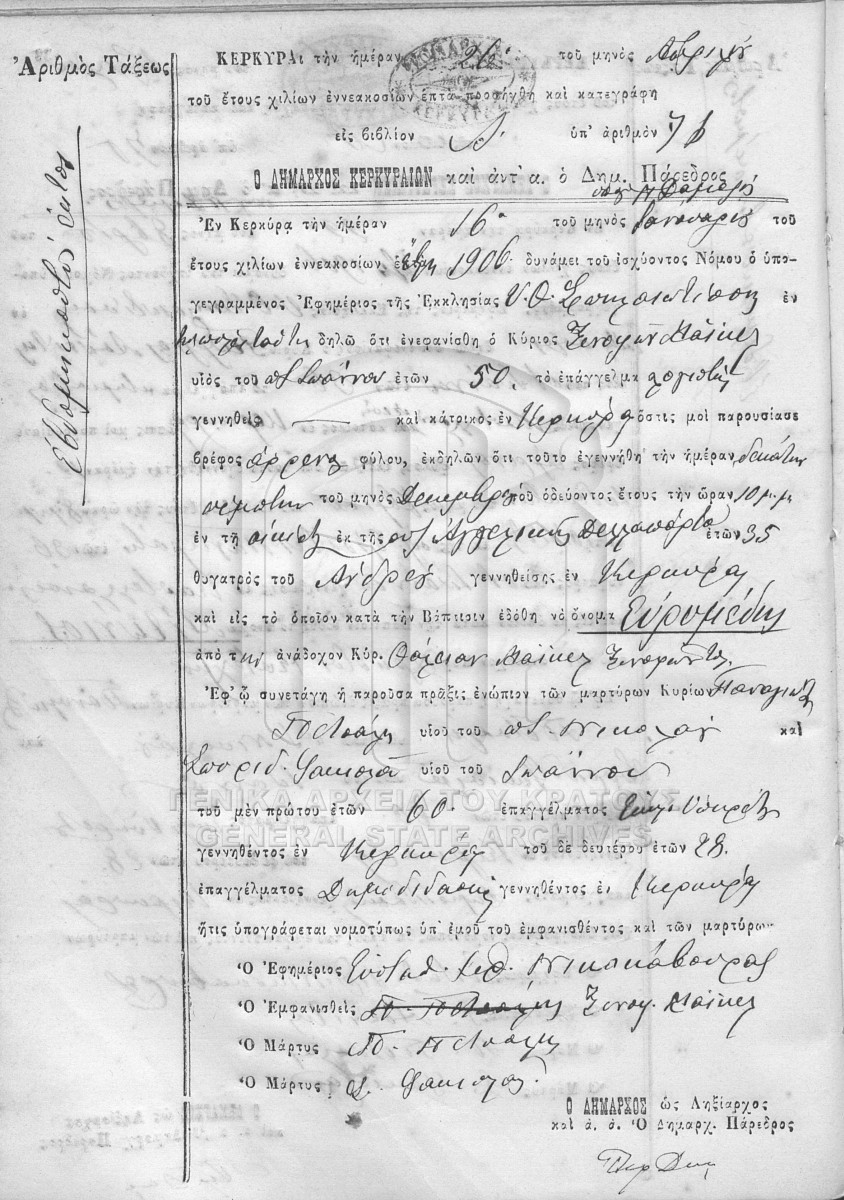 Ἀριθμὸς Τάξεως
Ἑβδομηκοστὸς ἕκτος
ΚΕΡΚΥΡΑι τὴν ἡμέραν 26 τοῦ μηνὸς Ἀπριλίου
τοῦ ἔτους χιλίων ἐννεακοσίων ἑπτὰ προσήχθη καὶ κατεγράφη
εἰς βιβλίον Α. ὑπ' ἀριθμὸν 76
Ο ΔΗΜΑΡΧΟΣ ΚΕΡΚΥΡΑΙΩΝ καὶ ἀντ' α. ὁ Δημ. Πάρεδρος
Ἐν Κερκύρᾳ τὴν ἡμέραν 16 τοῦ μηνὸς Ἰανουαρίου τοῦ
ἔτους χιλίων ἐννεακοσίων 1906 δυνάμει τοῦ ἰσχύοντος Νόμου ὁ ὑπο-
γεγραμμένος Ἐφημέριος τῆς Ἐκκλησίας Υ. Θ. Σπηλαιωτίσσης ἐν
δηλῶ ὅτι ἐνεφανίσθη ὁ Κύριος Ξενοφῶν
υἱὸς τοῦ Ἰωάννου ἐτῶν 50. τὸ ἐπάγγελμα λογιστὴς
γεννηθεὶς — καὶ κάτοικος ἐν Κερκύρᾳ ὅστις μοὶ παρουσίασε
βρέφος ἄρρεν φύλου, ἐκδηλῶν ὅτι τοῦτο ἐγεννήθη τὴν ἡμέραν δεκάτην
πέμπτην τοῦ μηνὸς Δεκεμβρίου τοῦ ὁδεύοντος ἔτους τὴν ὥραν 10 μ.μ
ἐν τῇ οἰκίᾳ ἐκ τῆς συζ Ἀγγελικῆς Δελλαπόρτα ἐτῶν 35
θυγατρὸς τοῦ Ἀνδρέου γεννηθείσης ἐν Κερκύρᾳ
καὶ εἰς τὸ ὁποῖον κατὰ τὴν Βάπτισιν ἐδόθη τὸ ὄνομα Εὐρυμέδης
ἀπὸ τὴν ἀνάδοχον Κύρ. Θάλειαν Ξενοφῶντος
Ἐφ' ᾧ συνετάγη ἡ παροῦσα πρᾶξις ἐνώπιον τῶν μαρτύρων Κυρίων Παναγιώτη
υἱοῦ τοῦ Νικολάου καὶ
Σπυρίδ. υἱοῦ τοῦ Ἰωάννου
ΓΕΝΙΚΑ ΑΡΧΕΙΑ ΤΟΥ ΚΡΑΤΟΥΣ
τοῦ μὲν πρώτου ἐτῶν 60. ἐπαγγέλματος
GENERAL STATE ARCHIVES
γεννηθέντος ἐν Κερκύρᾳ τοῦ δὲ δευτέρου ἐτῶν 28.
ἐπαγγέλματος Δημοδιδασκ γεννηθέντος ἐν Κερκύρᾳ
ἥτις ὑπογράφεται νομοτύπως ὑπ' ἐμοῦ τοῦ ἐμφανισθέντος καὶ τῶν μαρτύρων
Ὁ Ἐφημέριος Εὐστάθ. Νικοκάβουρας
Ὁ Ἐμφανισθεὶς Ξενοφ.
Ὁ Μάρτυς Π.
Ὁ Μάρτυς Σ.
Ο ΔΗΜΑΡΧΟΣ ὡς Ληξίαρχος
καὶ ἀ. ἀ. Ὁ Δημαρχ. Πάρεδρος